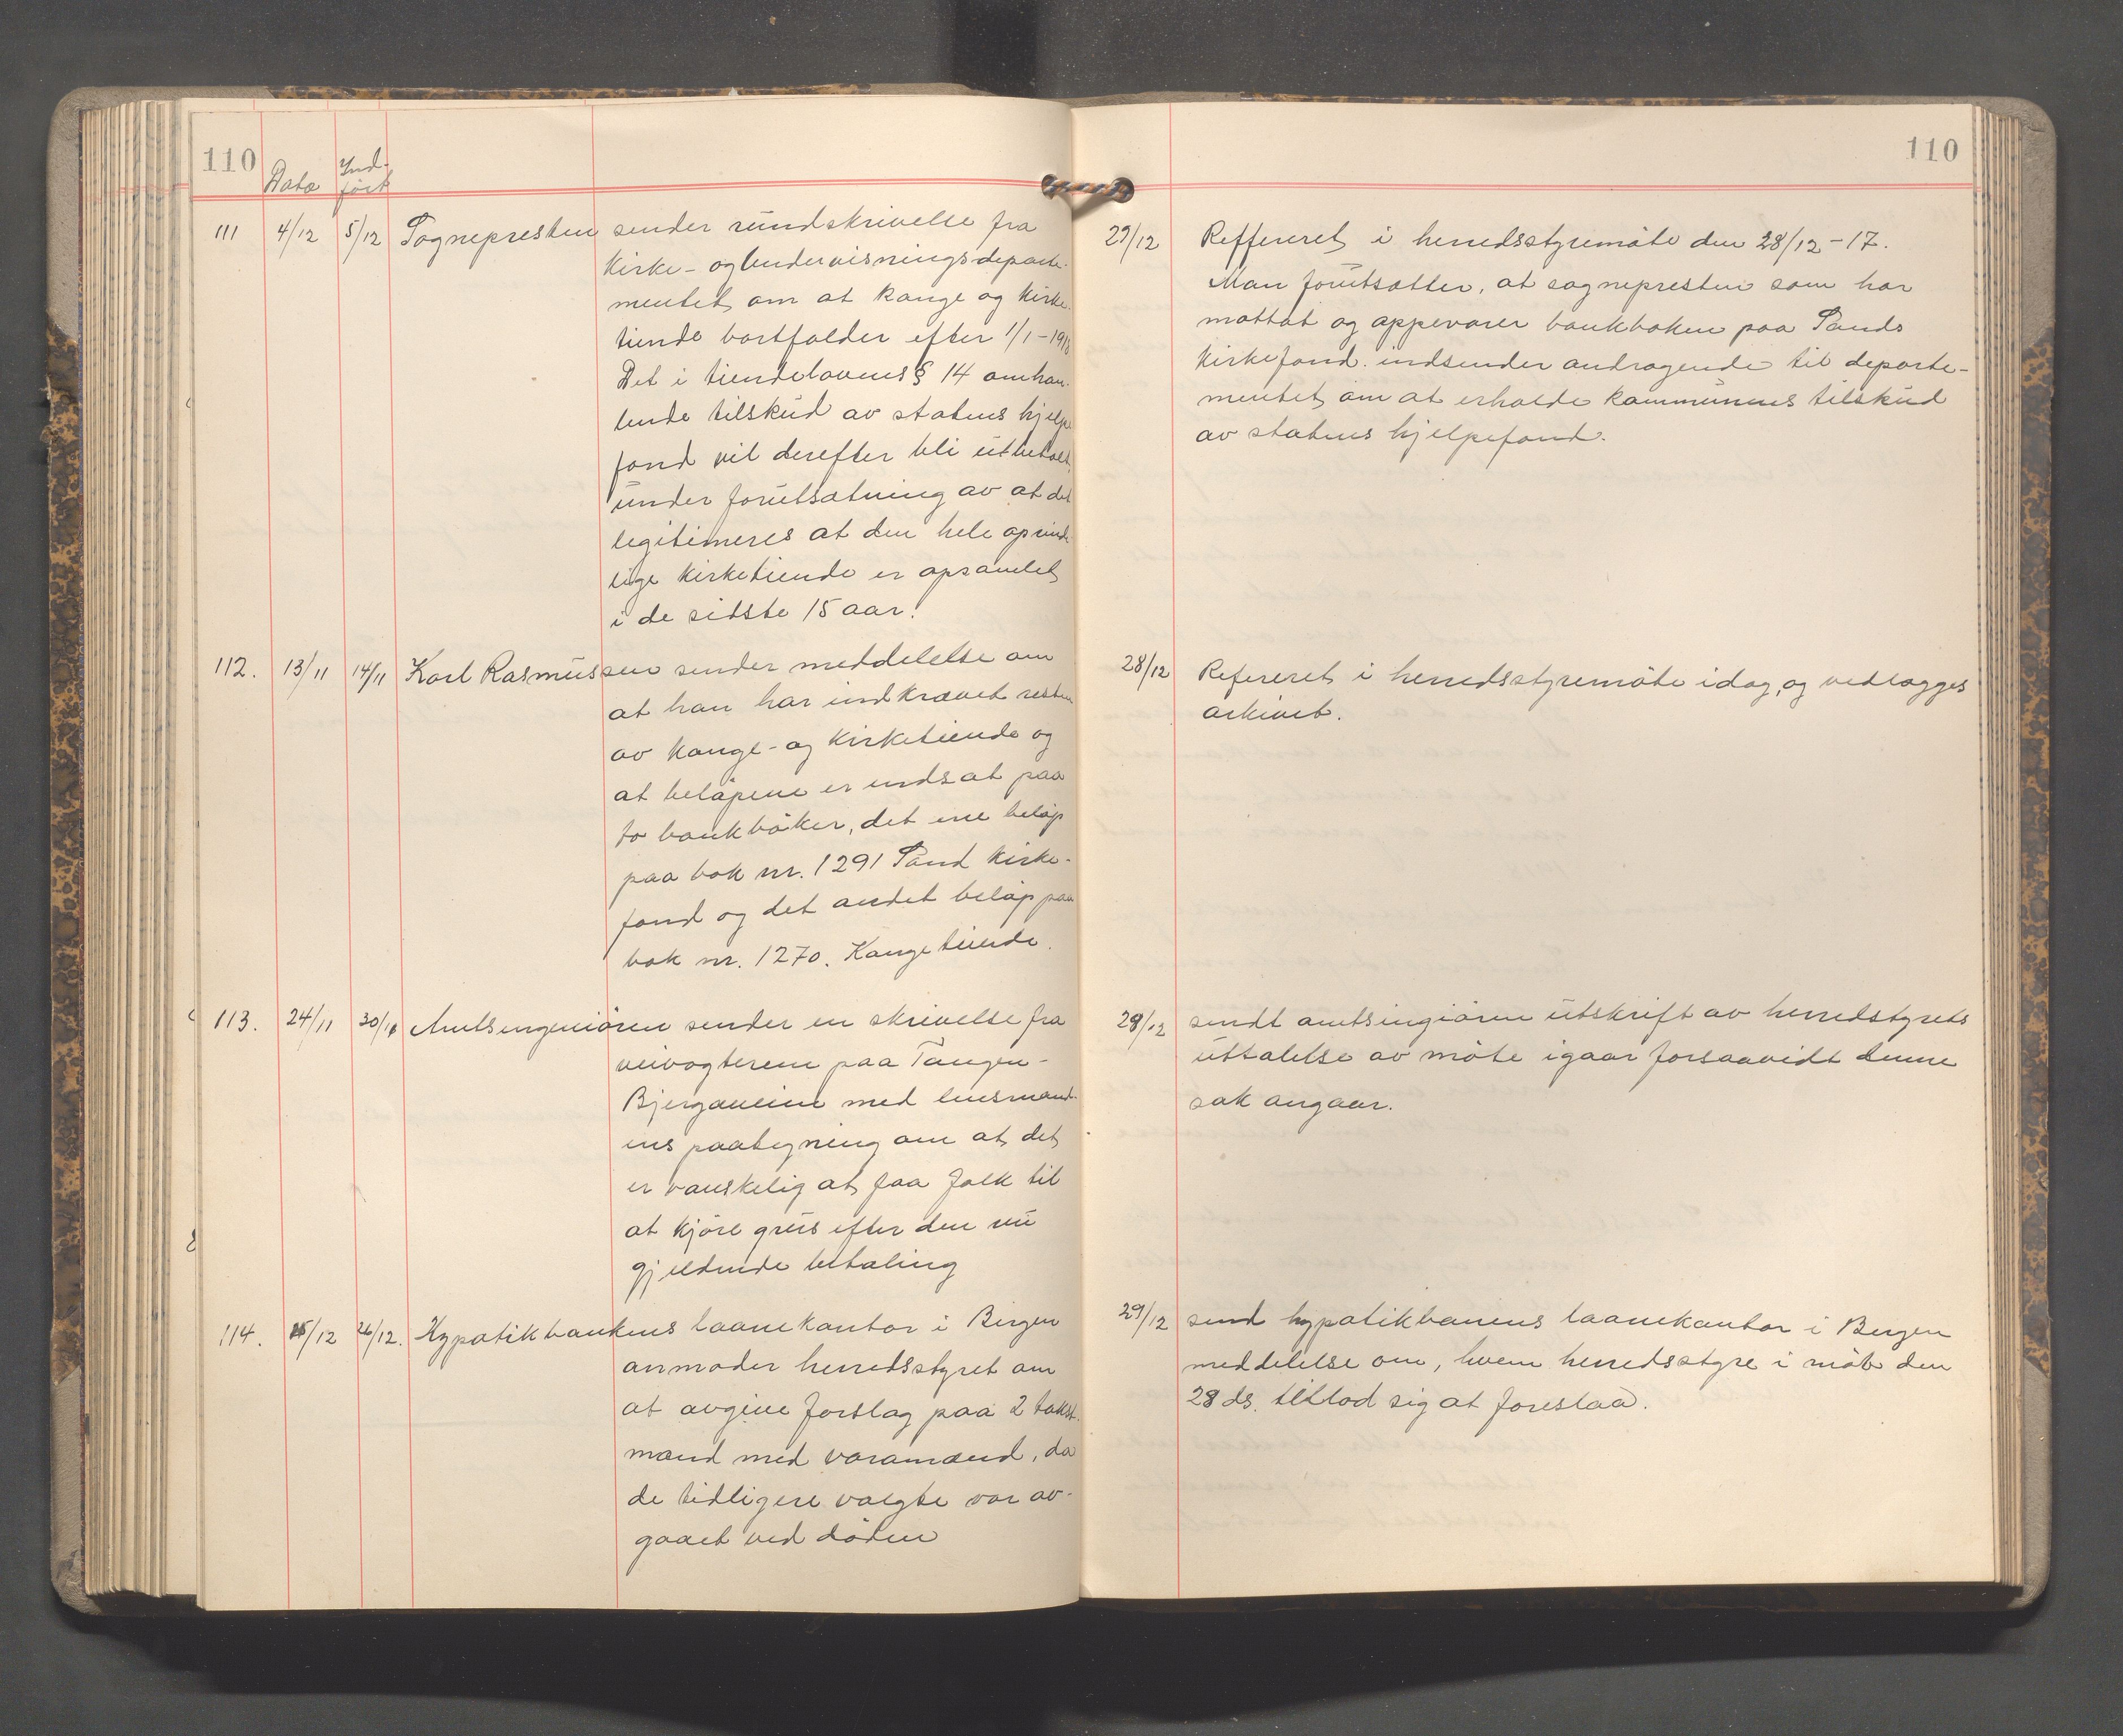 110
Dato
Ind-
ført
111 4/12 5/12 Sognepresten sender rundskrivelse fra
Kirke- og Undervisningsdeparte-
mentet om at konge og kirke-
tiende bortfalder efter 1/1-1918
Det i tiendelovens § 14 omhan-
lende tilskud av statens hjelpe
fond vil derefter bli utbetalt,
under forutsætning av at det
legitimeres at den hele oprinde
lige kirketiende er opsamlet
i de sidste 15 aar.
112. 13/11 14/11 Karl Rasmussen sender meddelelse om
at han har indkrævet resten
av konge- og kirketiende og
at beløpene er indsat paa
to bankbøker, det ene beløp
paa bok nr. 1291 Sand kirke-
fond og det andet beløp paa
bok nr. 1270. Kongetiende.
113. 24/11 30/11 Amtsingeniøren sender en skrivelse fra
veivogterene paa Tangen-
Bjergaveien med lensmand-
ens paategning om at det
er vanskelig at faa folk til
at kjøre grus efter den nu
gjeldende betaling
114. 15/12 26/12. Hypotikbankens laanekontor i Bergen
anmoder herredsstyret om
at avgive forslag paa 2 takst-
mænd med varamænd, da
de tidligere valgte var av-
gaaet ved døden
110
29/12 Reffereret i herredsstyremøte den 28/12-17.
Man forutsætter, at sognepresten som har
mottat og oppevarer bankboken paa Sands
Kirkefond. indsender andragende til departe-
mentet om at erholde kommunens tilskud
av statens hjelpefond.
28/12 Refereret i herredsstyremøte idag, og vedlægges
arkivet.
29/12 sendt amtsingiøren utskrift av herredstyrets
uttalelse av møte igaar forsaavidt denne
sak angaar.
29/12 send hypotikbanens laanekontor i Bergen
meddelelse om, hvem herredsstyre i møte den
28 ds. tillod sig at foreslaa.